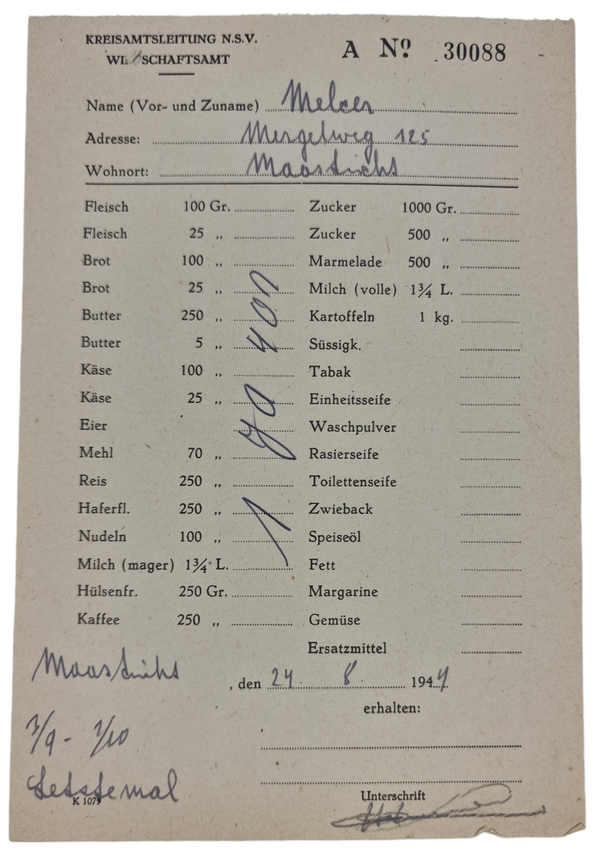 KREISAMTSLEITUNG N.S.V.
WI SCHAFTSAMT
A Nº 30088
Name (Vor- und Zuname) Melcer
Adresse: Mergelweg 125
Wohnort: Maastricht
Fleisch 100 Gr. Zucker 1000 Gr.
Fleisch 25 „ Zucker 500 „
Brot 100 „ Marmelade 500 „
Brot 25 „ Milch (volle) 1¾ L.
Butter 250 „ Kartoffeln 1 kg.
Butter 5 „ Süssigk.
Käse 100 „ Tabak
Käse 25 „ Einheitsseife
Eier Waschpulver
Mehl 70 „ Rasierseife
Reis 250 „ Toilettenseife
Haferfl. 250 „ Zwieback
Nudeln 100 „ Speiseöl
Milch (mager) 1¾ L. Fett
Hülsenfr. 250 Gr. Margarine
Kaffee 250 „ Gemüse
Ersatzmittel
Maastricht
, den 24. 8. 1944
erhalten:
Letstemal
K 1079
Unterschrift